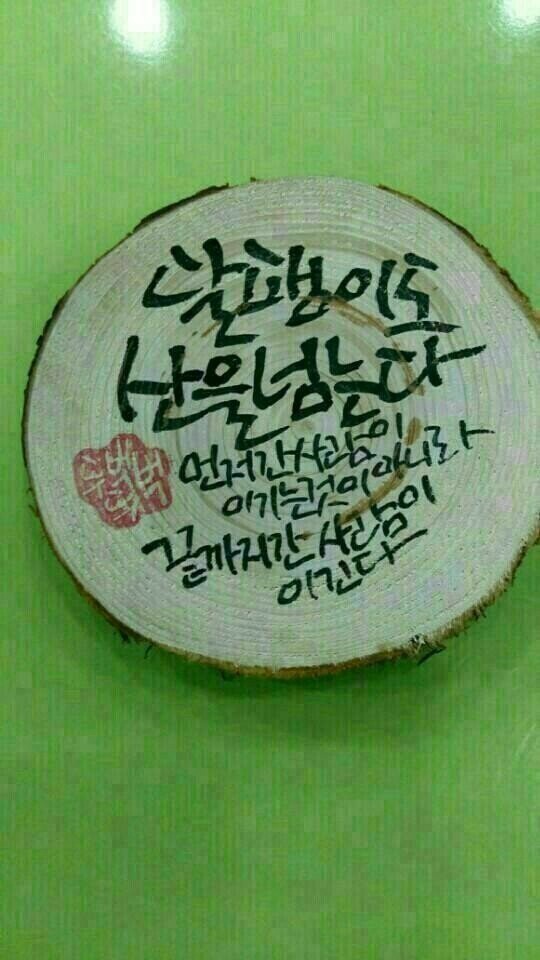 달팽이도
산을넘는다
먼저간사람이
이기는것이아니라
끝까지간사람이
이긴다